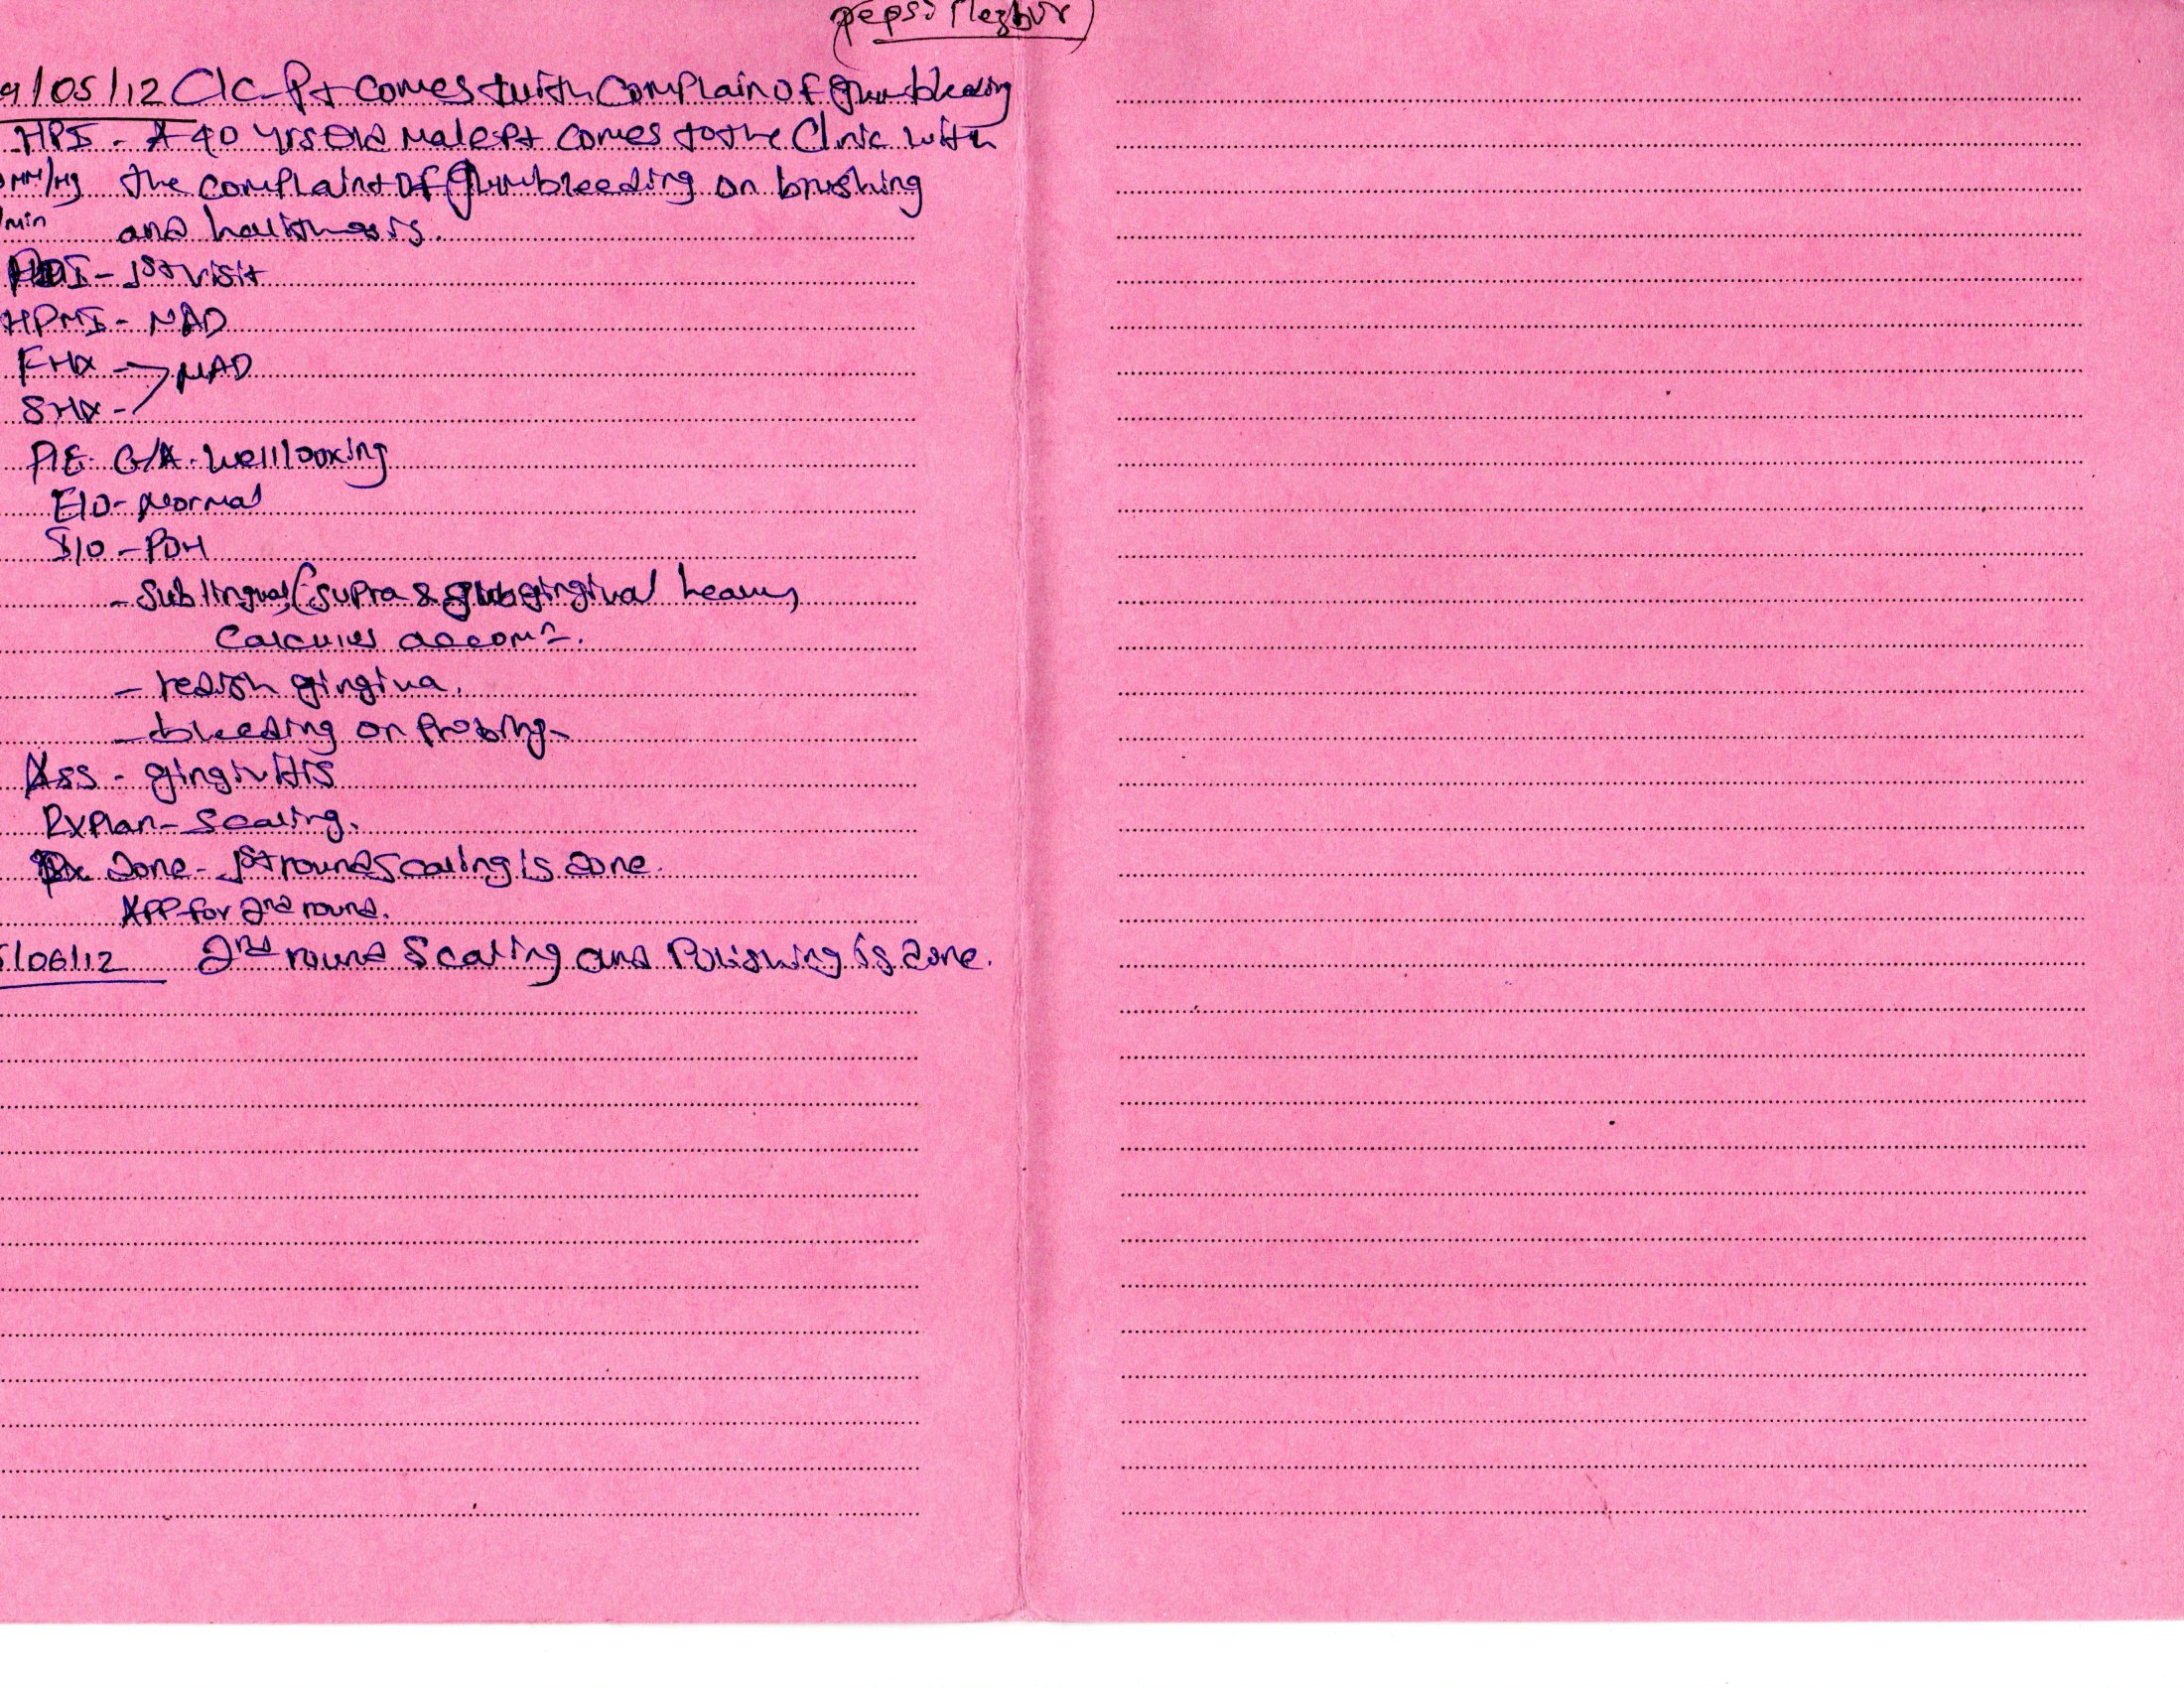 9/05/12 C/C - Pt comes with complain of gum bleeding
HPI - A 40 yrs old male pt comes to the clinic with
mm/Hg the complaint of gum bleeding on brushing
/min and
- 1st visit
HPMI - NAD
FHX - NAD
SHX -
P/E - G/A - well looking
E/O - Normal
I/O - POH
- Sub lingual (supra & subgingival heavy
calculus accomn.
- redish gingiva.
- bleeding on probing -
Ass - gingivitis
Rx Plan - Scaling.
Rx done - 1st round scaling is done.
APP for 2nd round.
/06/12 2nd round scaling and Polishing is done.